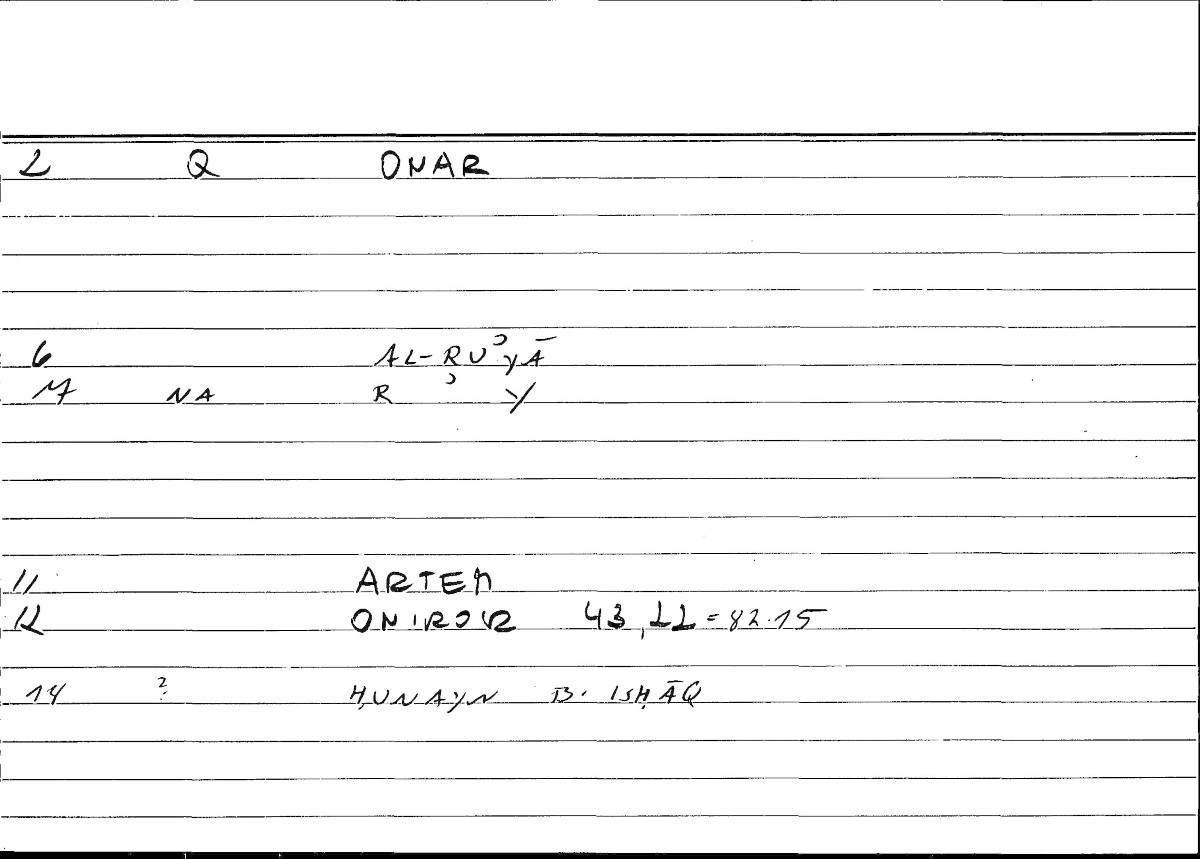 2 Q ONAR
6 AL-RUʾYĀ
7 NA R ʾ Y
11 ARTEM
12 ONIROCR 43,22 = 82.15
14 ? ḤUNAYN B. ISḤĀQ